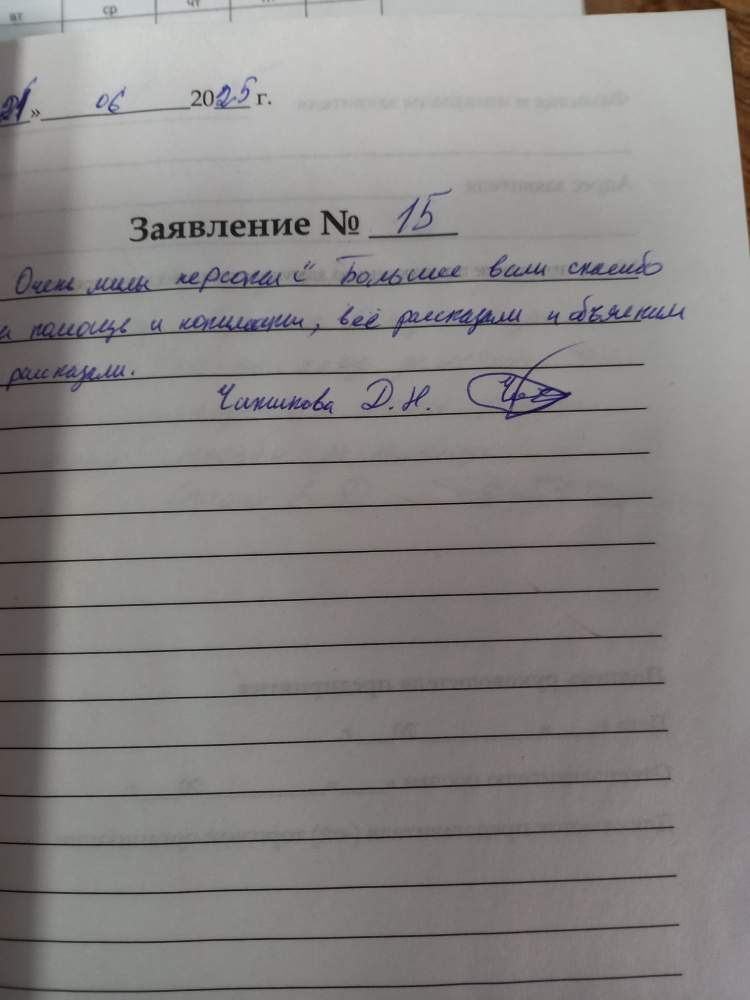 вт ср чт
21» 06 2025 г.
Заявление № 15
Очень милы персонал Большое вам спасибо
помощь и, всё рассказали и объяснили
рассказали.
Д. Н.